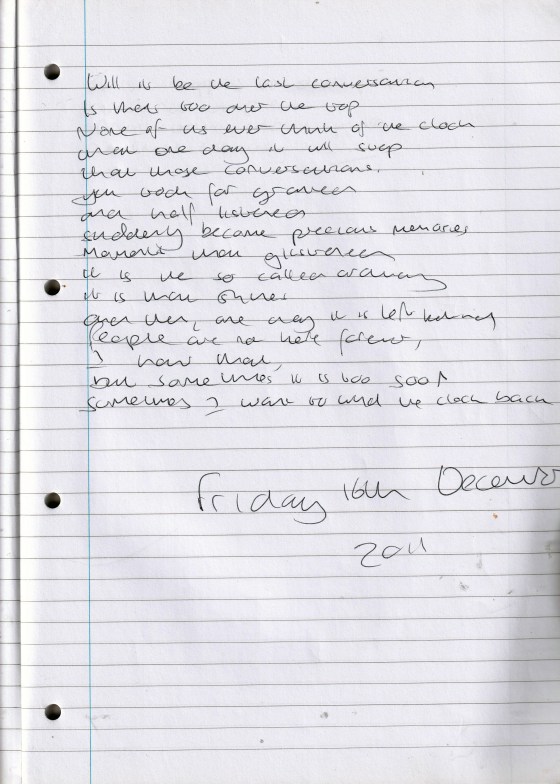 Will it be the last conversation
Is that too over the top
None of us ever think of the clock
that one day it will stop
that those conversations.
you took for granted
and half listened
suddenly become precious memories
moments that glistened
it is the so called ordinary
it is that shines
and then, one day it is left behind
people are not here forever,
I know that,
but sometimes it is too soon
sometimes I want to wind the clock back
Friday 16th December
2011